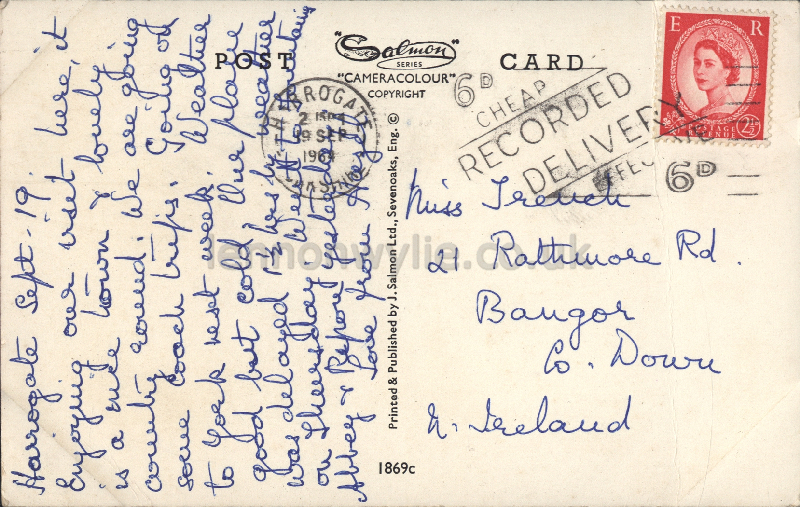 Harrogate Sept - 19.
Enjoying our visit here, it
is a nice town & lovely
country round. We are going
some coach trips. Going
to York next week. Weather
good but cold. Our plane
was delayed 1½ hrs by weather
on Thursday. Went to Fountains
Abbey & Ripon yesterday.
Love from
POST CARD
Salmon
SERIES
"CAMERACOLOUR"
COPYRIGHT
HARROGATE
19 SEP
1964
YORKSHIRE
6D
CHEAP
RECORDED
DELIVERY
6D
E R
POSTAGE
2½D
Printed & Published by J. Salmon Ltd., Sevenoaks, Eng. ©
Miss French
21 Rathmore Rd.
Bangor
Co. Down
N. Ireland
1869c
lennonwylie.co.uk